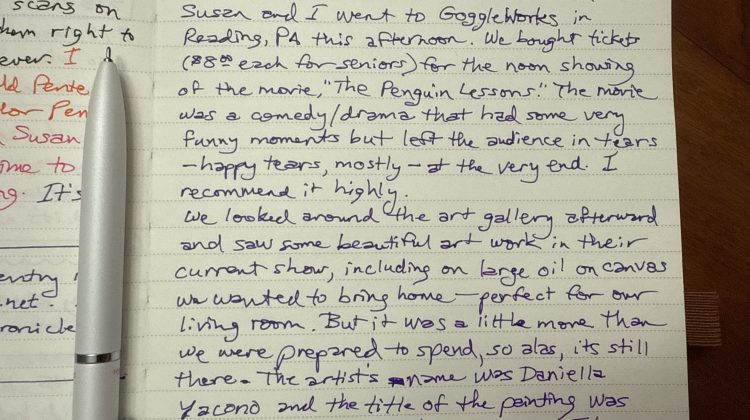 scans on
them right to
ever. I
ld Pente
lor Pen
Susan
ime to
ng. It's
entry
.net.
ronicle
Susan and I went to GoggleWorks in
Reading, PA this afternoon. We bought tickets
($8.00 each for seniors) for the noon showing
of the movie, "The Penguin Lessons." The movie
was a comedy/drama that had some very
funny moments but left the audience in tears
—happy tears, mostly—at the very end. I
recommend it highly.
We looked around the art gallery afterward
and saw some beautiful art work in their
current show, including on large oil on canvas
we wanted to bring home—perfect for our
living room. But it was a little more than
we were prepared to spend, so alas, its still
there. The artist's name was Daniella
Yacono and the title of the painting was